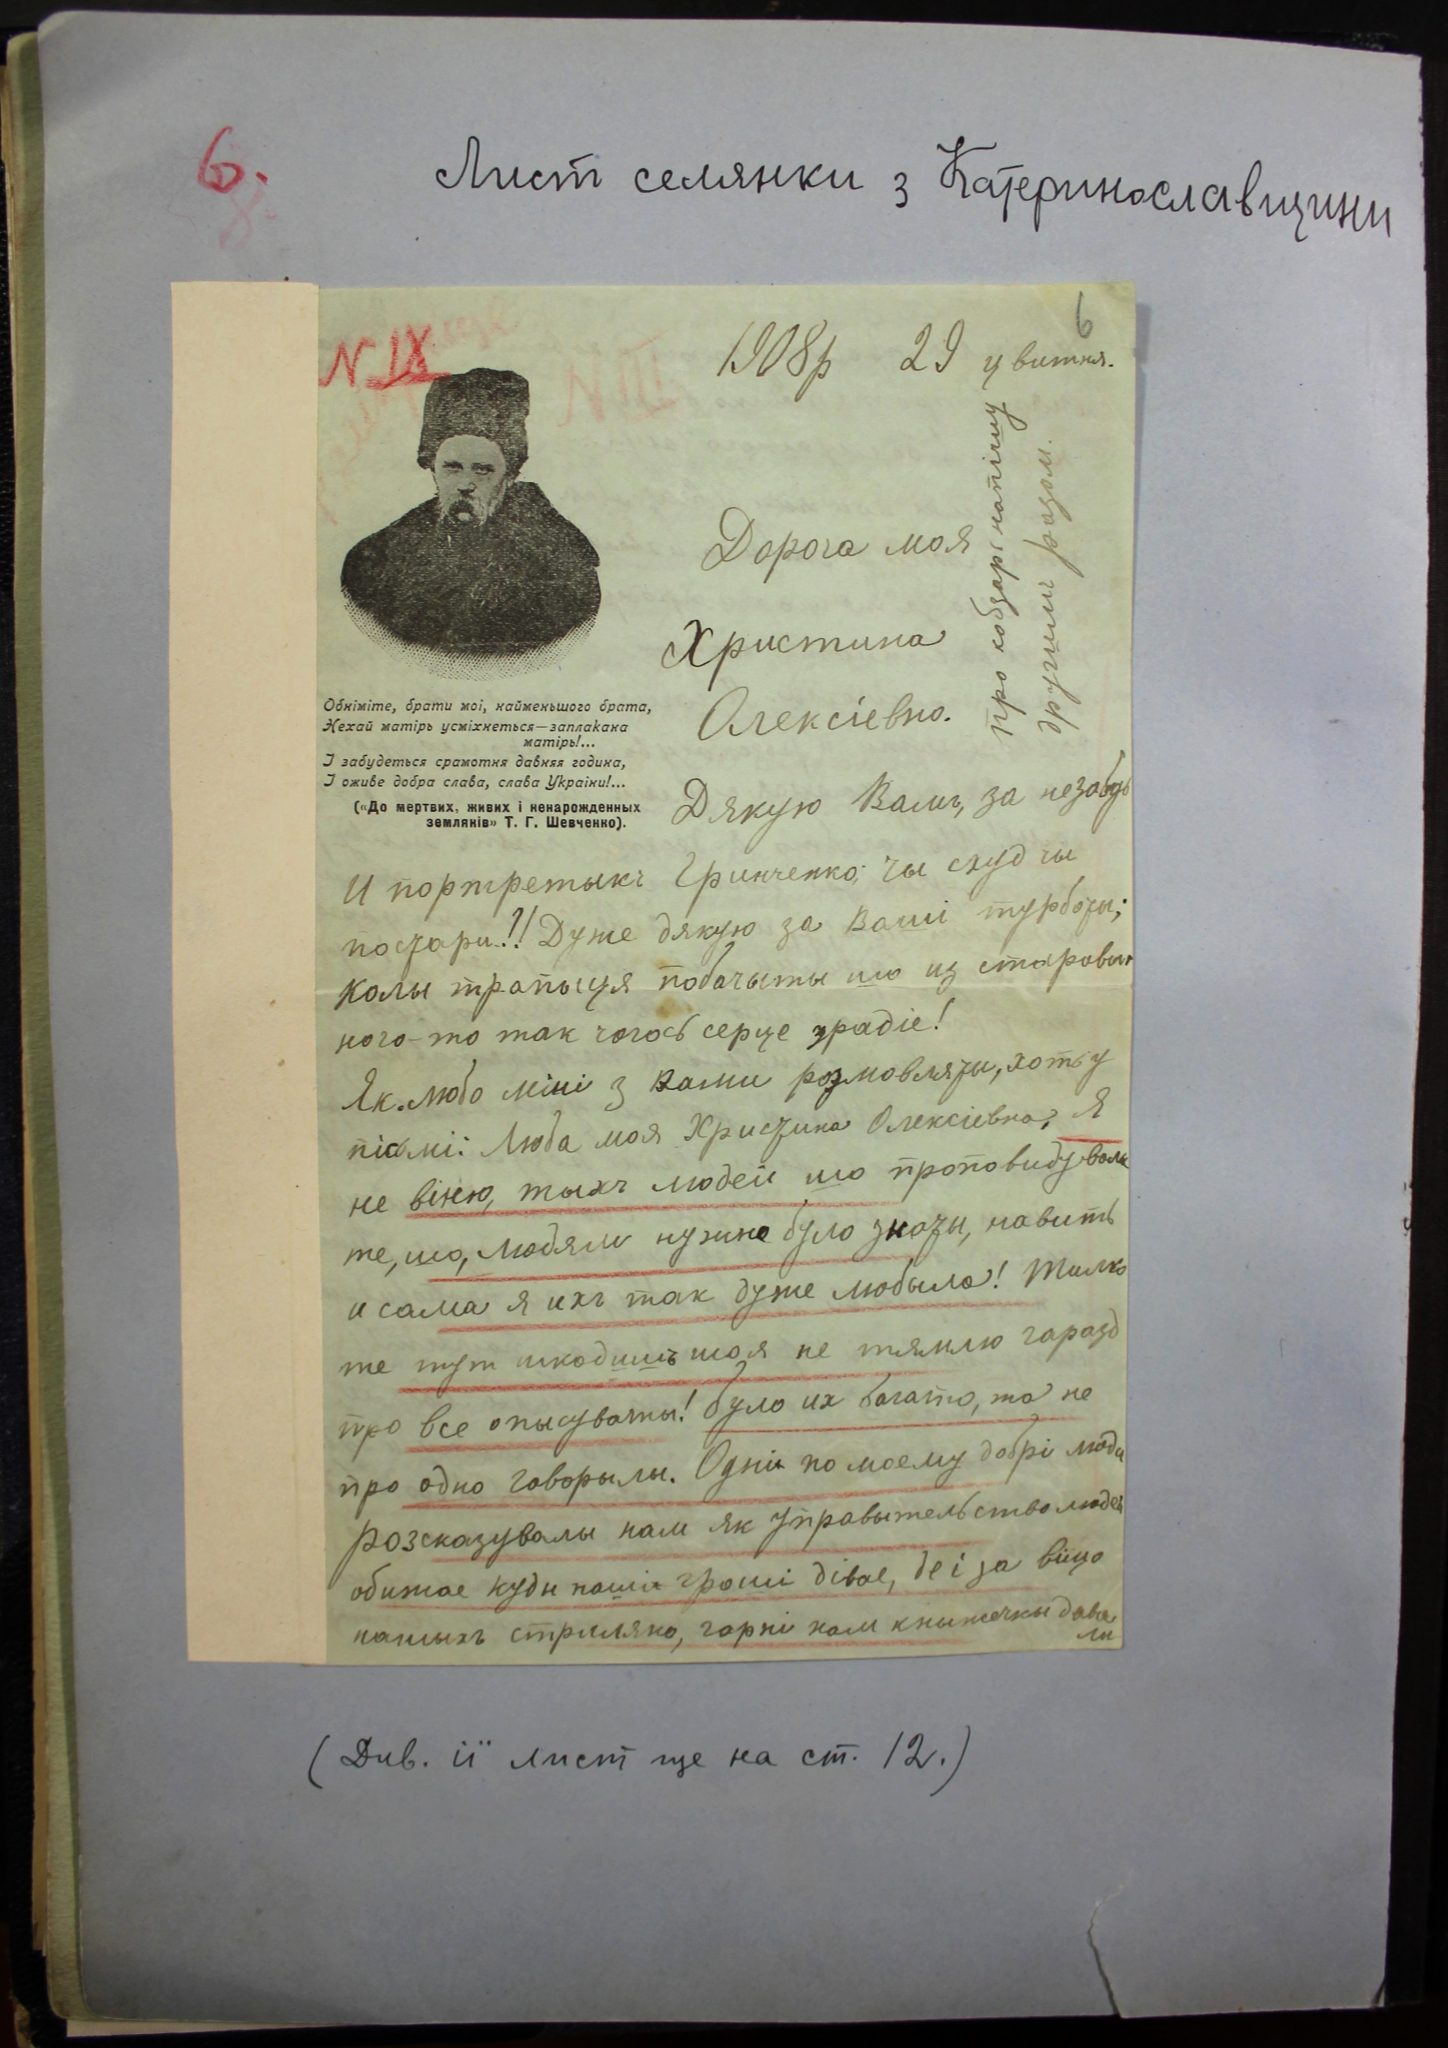 6.
Лист селянки з Катеринославщини
N IX
6
1908р 29 цвитня.
про кобзарі напішу
другимъ разом.
Дорога моя
Христина
Олексіевно.
Обніміте, брати моі, найменьшого брата,
Нехай матірь усміхнеться—заплакана
матірь!...
І забудеться срамотня давняя година,
І оживе добра слава, слава Украіни!...
(«До мертвих, живих і ненарожденных
земляків» Т. Г. Шевченко).
Дякую Вамъ, за незабудь
И портретыкъ Гринченко; чы схуд чы
постари..!! Дуже дякую за Ваші турботы;
Колы трапыця побачыты шо из старовын
ного-то так чогось серце зрадіе!
Як любо міні з Вами розмовляты, хоть у
пісьмі: Люба моя Христина Олексіевно, Я
не віню, тыхъ людей шо проповидувалы
те, шо, людям нужно було знаты, навить
и сама я ихъ так дуже любыла! Тилко
те тут шкодышъ шо я не тямлю гаразд
про все опысуваты! було их багато, та не
про одно говорылы. Одни по моему добрі люды
розсказувалы нам як управытельство людей
обижае куды наші гроші дівае, де і за віщо
нашыхъ стриляно, гарні нам кныжечкы дава
лы
(Див. її лист ще на ст. 12.)